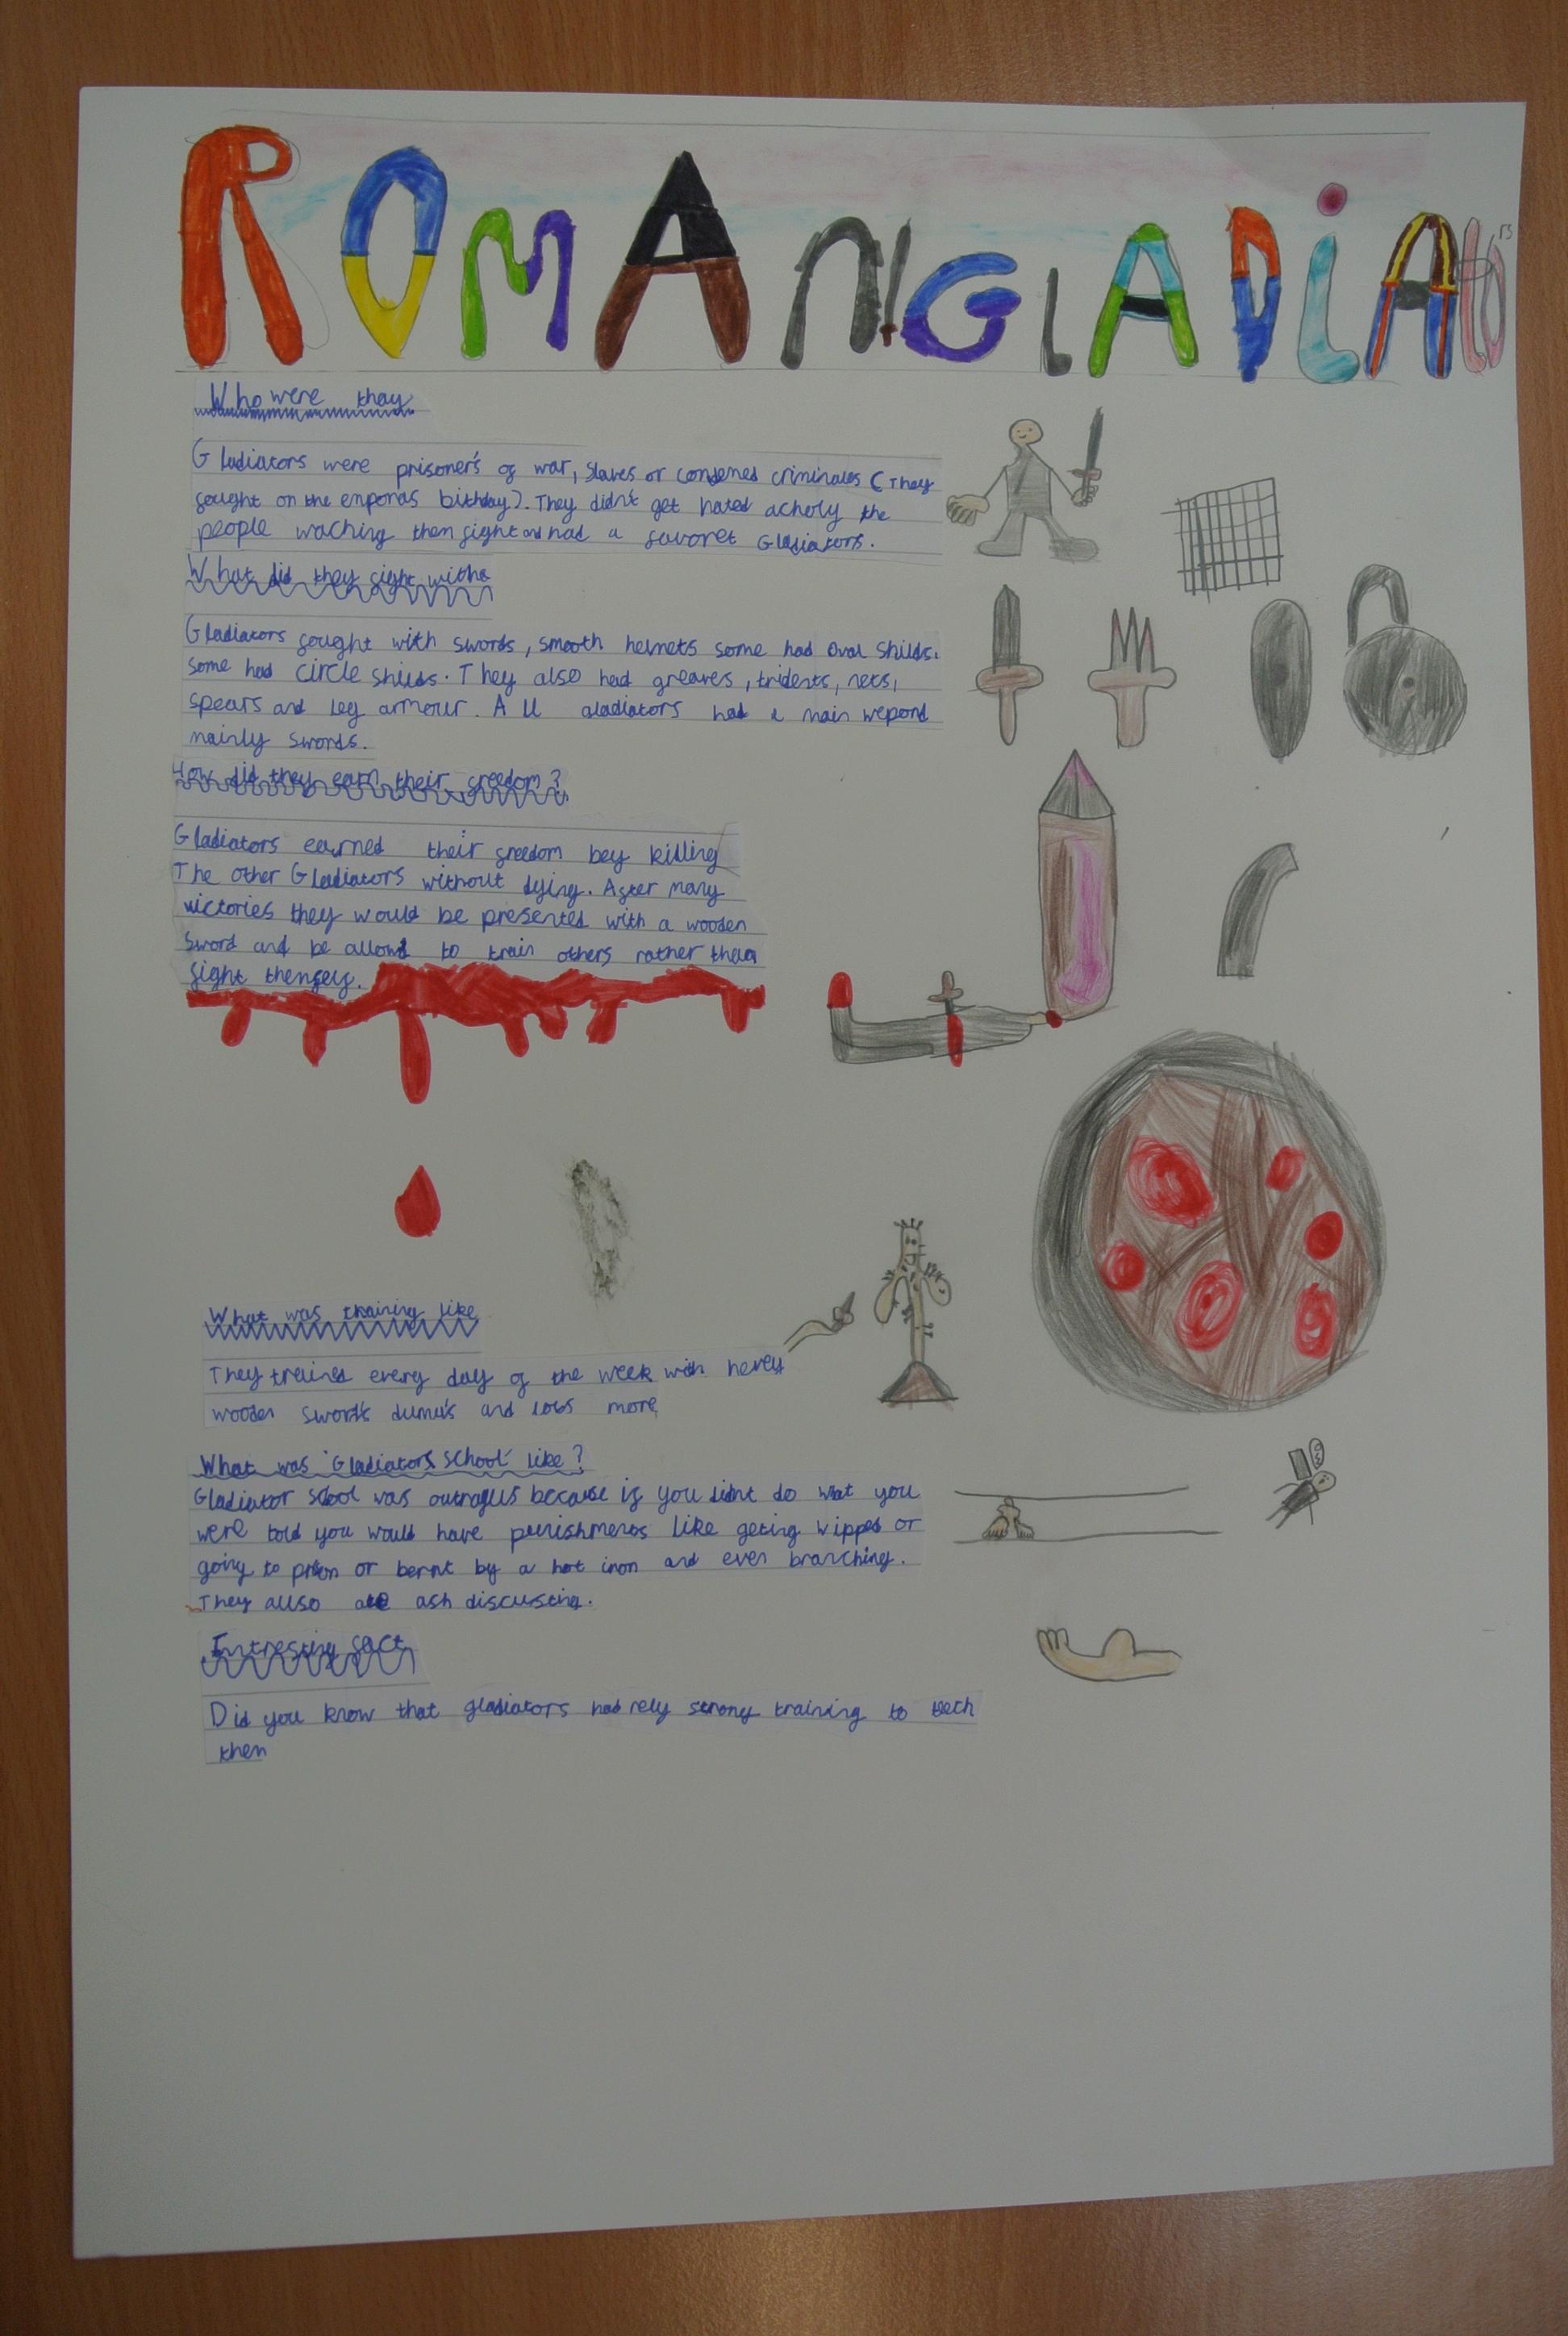 ROMAN GLADIATORS
Who were thay
Gladiators were prisoner's of war, Slaves or condemed criminales (They
fought on the emporas bithday). They didn't get hated acholy the
people waching them fight and had a favoret Gladiators.
What did they fight with
Gladiators fought with swords, smooth helmets some had oval shilds.
some had circle shilds. They also had greaves, tridents, nets,
spears and leg armour. All gladiators had a main wepond
mainly swords.
How did they earn their freedom?
Gladiators earned their freedom bey killing
The other Gladiators without dying. After many
victories they would be presented with a wooden
sword and be allowd to train others rather than
fight themsefy.
What was training like
They trained every day of the week with hevey
wooden sword's dumu's and lots more
What was 'Gladiators school' like?
Gladiator school was outragus because if you didnt do what you
were told you would have punishments like geting wipped or
going to prison or bernt by a hot iron and even branching.
They allso ate ash discusting.
Intresting fact
Did you know that gladiators had rely strong training to tech
them